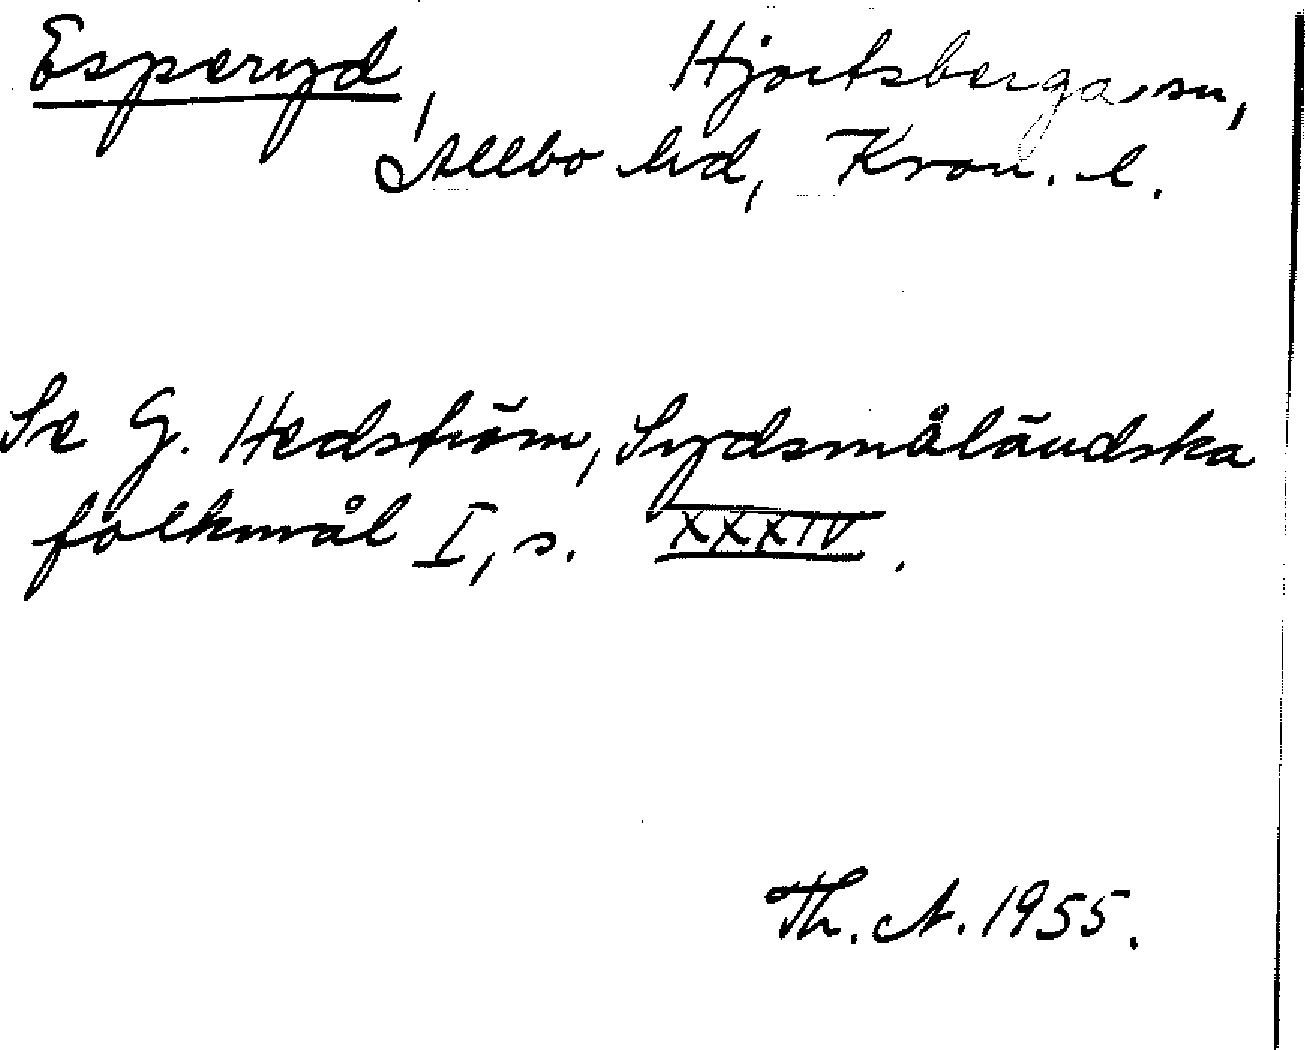 Esperyd, Hjortsberga sn,
Allbo hd, Kron. l.
Se G. Hedström, Sydsmåländska
folkmål I, s. XXXIV.
Th. A. 1955.